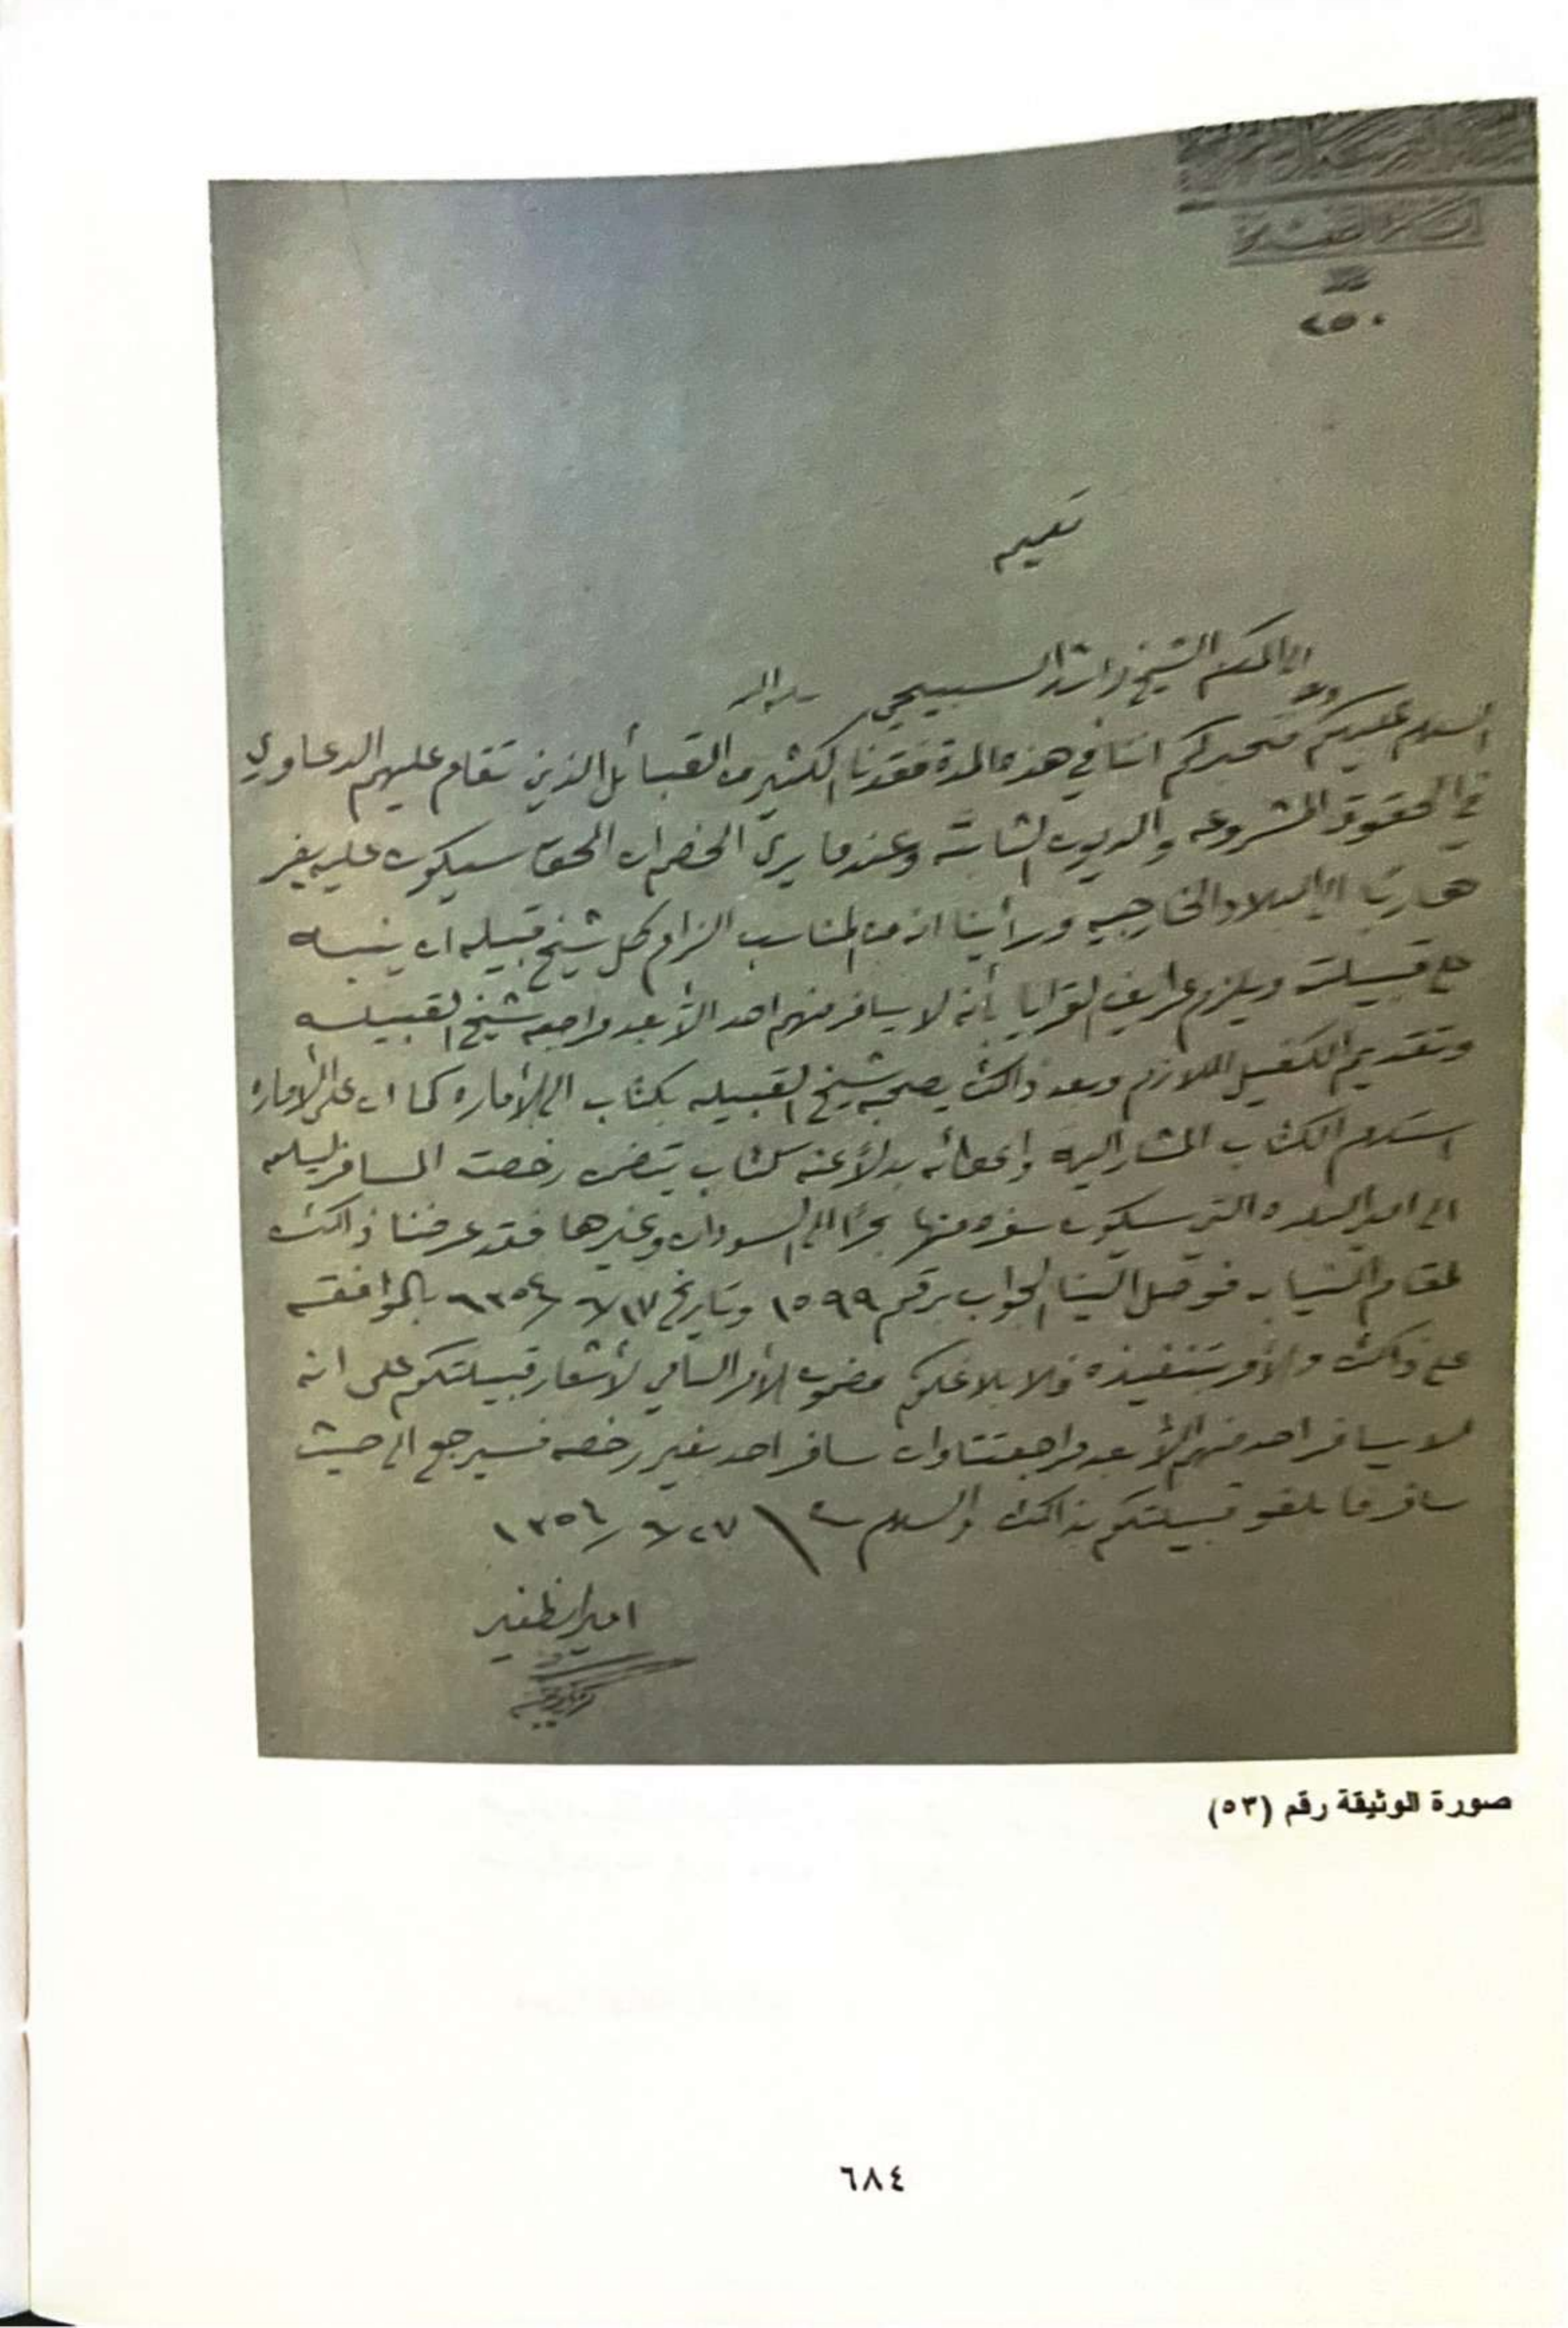 ٢٥٠
تعميم
الى المكرم الشيخ راشد السبيحي سلمه الله
السلام عليكم وبعد نخبركم اننا في هذه المدة فقدنا الكثير من القبائل الذين تقام عليهم الدعاوي
في الحقوق المشروعه والديون الثابتة وعندما يرى الخصم ان الحق سيكون عليه يفر
هاربًا الى البلاد الخارجيه ورأينا انه من المناسب الزام كل شيخ قبيله ان ينبه
على قبيلته ويلزم عرايف القرايا بأنه لا يسافر منهم احد الا بعد مراجعه شيخ القبيله
وتقديم الكفيل اللازم وبعد ذالك يصحبه شيخ القبيله بكتاب الى الأماره كما ان على الأماره
استلام الكتاب المشار اليه واعطائه بدلاً عنه كتاب يتضمن رخصت المسافر ليسلمه
الى امير البلده التي سيكون سفره منها بحرًا الى السودان وغيرها فقد عرضنا ذالك
لمقام النيابه فوصل الينا الجواب برقم ١٥٩٩ وتاريخ ٦/١٧/ ١٣٥٤ بالموافقه
على ذالك والأمر بتنفيذه ولابلاغكم مضمون الأمر السامي لأشعار قبيلتكم على انه
لا يسافر احد منهم الا بعد مراجعتنا وان سافر احد بغير رخصه فسيرجع الى حيث
سافر فابلغو قبيلتكم بذالك والسلام ٦/٢٧/ ١٣٥٤
امير القنفذه
صورة الوثيقة رقم (٥٣)
٦٨٤